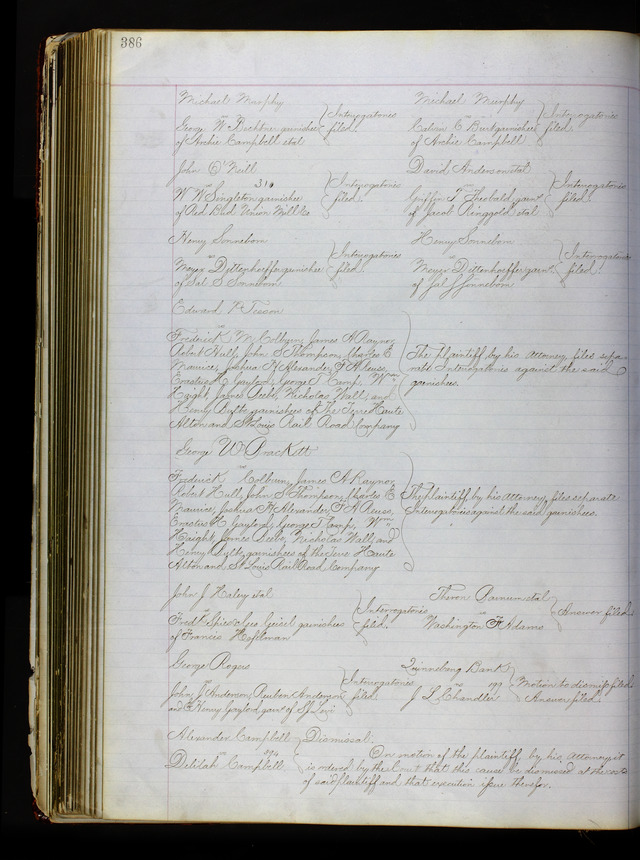 386
Michael Murphy
vs
George W Buchtner garnishee
of Archie Campbell etal
Interrogatories
filed.
Michael Murphy
vs
Calvin C. Burt garnishee
of Archie Campbell
Interrogatories
filed.
John O'Neill
vs 310
W W Singleton garnishee
of Red Bud Union Mill Co
Interrogatories
filed.
David Anderson etal
vs
Griffin T Theobald, garn.
of Jacob Ringgold etal
Interrogatories
filed.
Henry Sonneborn
vs
Meyer Dettenhoeffer garnishee
of Sal S Sonneborn
Interrogatories
filed.
Henry Sonneborn
vs
Meyer Dettenhoeffer garn.
of Sal S Sonneborn
Interrogatories
filed.
Edward P Tesson
vs
Frederick M. Colburn, James A Raynor,
Robert Hull, John S Thompson, Charles E
Maurice, Joshua H Alexander, F A Reuss,
Erastus H Gaylord, George T Kemp, Wm
Haight, James Reeb, Nicholas Wall, and
Henry Ayth garnishees of The Terre Haute
Alton and St Louis Rail Road Company
The plaintiff by his Attorney, files sepa-
rate Interrogatories against the said
garnishees.
George W Brackett
vs
Frederick Colburn, James A Raynor,
Robert Hull, John S Thompson, Charles E
Maurice, Joshua H Alexander, F A Reuss,
Erastus H Gaylord, George T Kemp, Wm
Haight, James Reeb, Nicholas Wall, and
Henry Ayth, garnishees of the Terre Haute
Alton and St Louis Rail Road Company
The plaintiff, by his Attorney, files separate
Interrogatories against the said garnishees.
John J Haley etal
vs
Fredk Spies & Geo Geisel garnishees
of Francis Hoffman
Interrogatories
filed.
Theron Barnum etal
vs
Washington F Adams
Answer filed
George Rogers
vs
John J Anderson, Reuben Anderson
and E Henry Gaylord garn. of S J Levi
Interrogatories
filed.
Quinnebaug Bank
vs
J L Chandler
Motion to dismiss filed
Answer filed.
Alexander Campbell
vs
Delilah Campbell.
Dismissal.
On motion of the plaintiff by his Attorney it
is ordered by the Court that this cause be dismissed at the cost
of said plaintiff and that execution issue therefor.